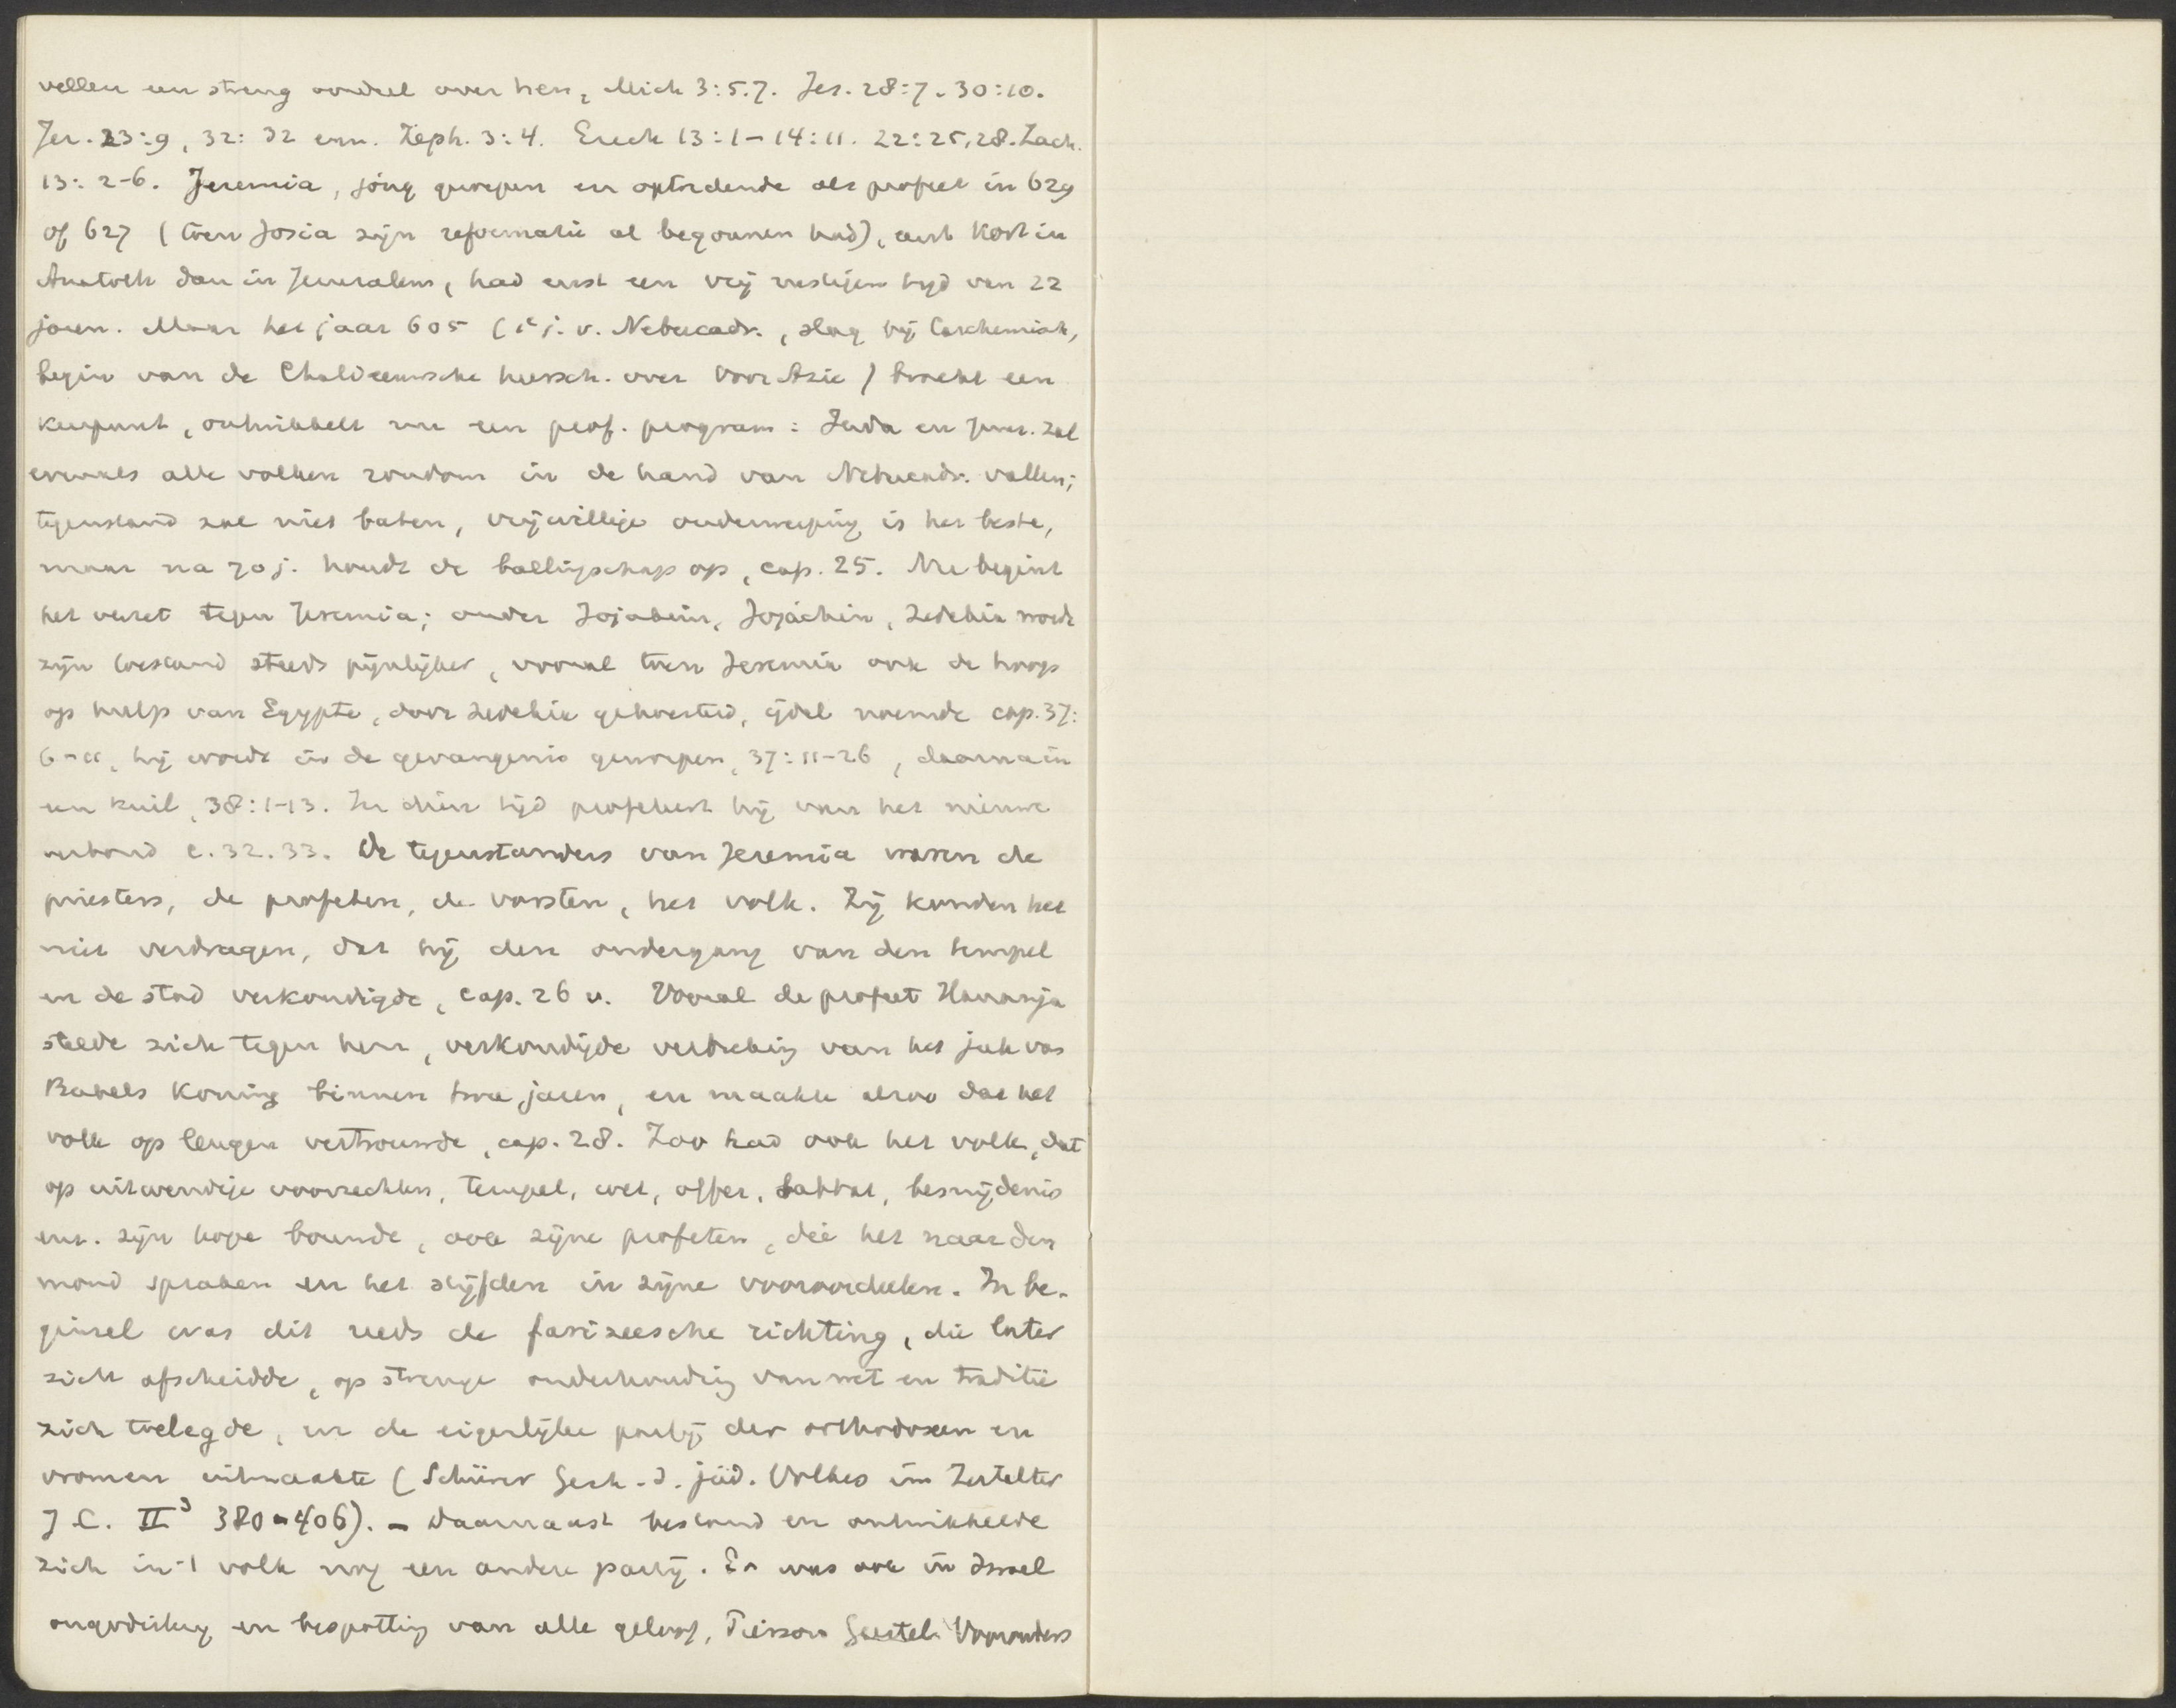 vellen een streng oordeel over hen, Mich 3:5.7. Jes. 28:7. 30:10.
Jer. 23:9, 32:32 enz. Zeph. 3:4. Ezech 13:1-14:11. 22:25,28. Zach.
13:2-6. Jeremia, jong geroepen en optredende als profeet in 629
of 627 (toen Josia zijn reformatie al begonnen had), eerst kort in
Anatoth dan in Jeruzalem, had eerst een vrij rustigen tijd van 22
jaren. Maar het jaar 605 (1e j. v. Nebucadr., slag bij Carchemish,
begin van de Chaldeeuwsche heersch. over Voor Azie) bracht een
keerpunt, ontwikkelt nu een prof. program: Juda en Jeruz. zal
evenals alle volken rondom in de hand van Nebucadr. vallen;
tegenstand zal niet baten, vrijwillige onderwerping is het beste,
maar na 70 j. houdt de ballingschap op, cap. 25. Nu begint
het verzet tegen Jeremia; onder Jojakim, Jojachin, Zedekia wordt
zijn toestand steeds pijnlijker, vooral toen Jeremia ook de hoop
op hulp van Egypte, door Zedekia gekoesterd, ijdel noemde cap. 37:
6-11, hij wordt in de gevangenis geworpen, 37:11-26, daarna in
een kuil, 38:1-13. In dien tijd profeteert hij van het nieuwe
verbond c. 32.33. De tegenstanders van Jeremia waren de
priesters, de profeten, de vorsten, het volk. Zij konden het
niet verdragen, dat hij den ondergang van den tempel
en de stad verkondigde, cap. 26 v. Vooral de profeet Hananja
stelde zich tegen hem, verkondigde verbreking van het juk van
Babels koning binnen twee jaren, en maakte alzoo dat het
volk op leugen vertrouwde, cap. 28. Zoo had ook het volk, dat
op uitwendige voorrechten, tempel, wet, offer, sabbat, besnijdenis
enz. zijn hope bouwde, ook zijne profeten, die het naar den
mond spraken en het stijfden in zijne vooroordeelen. In be-
ginsel was dit reeds de farizeesche richting, die later
zich afscheidde, op strenge onderhouding van wet en traditie
zich toelegde, en de eigenlijke partij der orthodoxen en
vromen uitmaakte (Schürer Gesch. d. jüd. Volkes im Zeitalter
J.C. II³ 380-406). - Daarnaast bestond en ontwikkelde
zich in 't volk nog een andere partij. Er was ook in Israel
ongodisterij en bespotting van alle geloof, Pierson Geestel. Voorouders